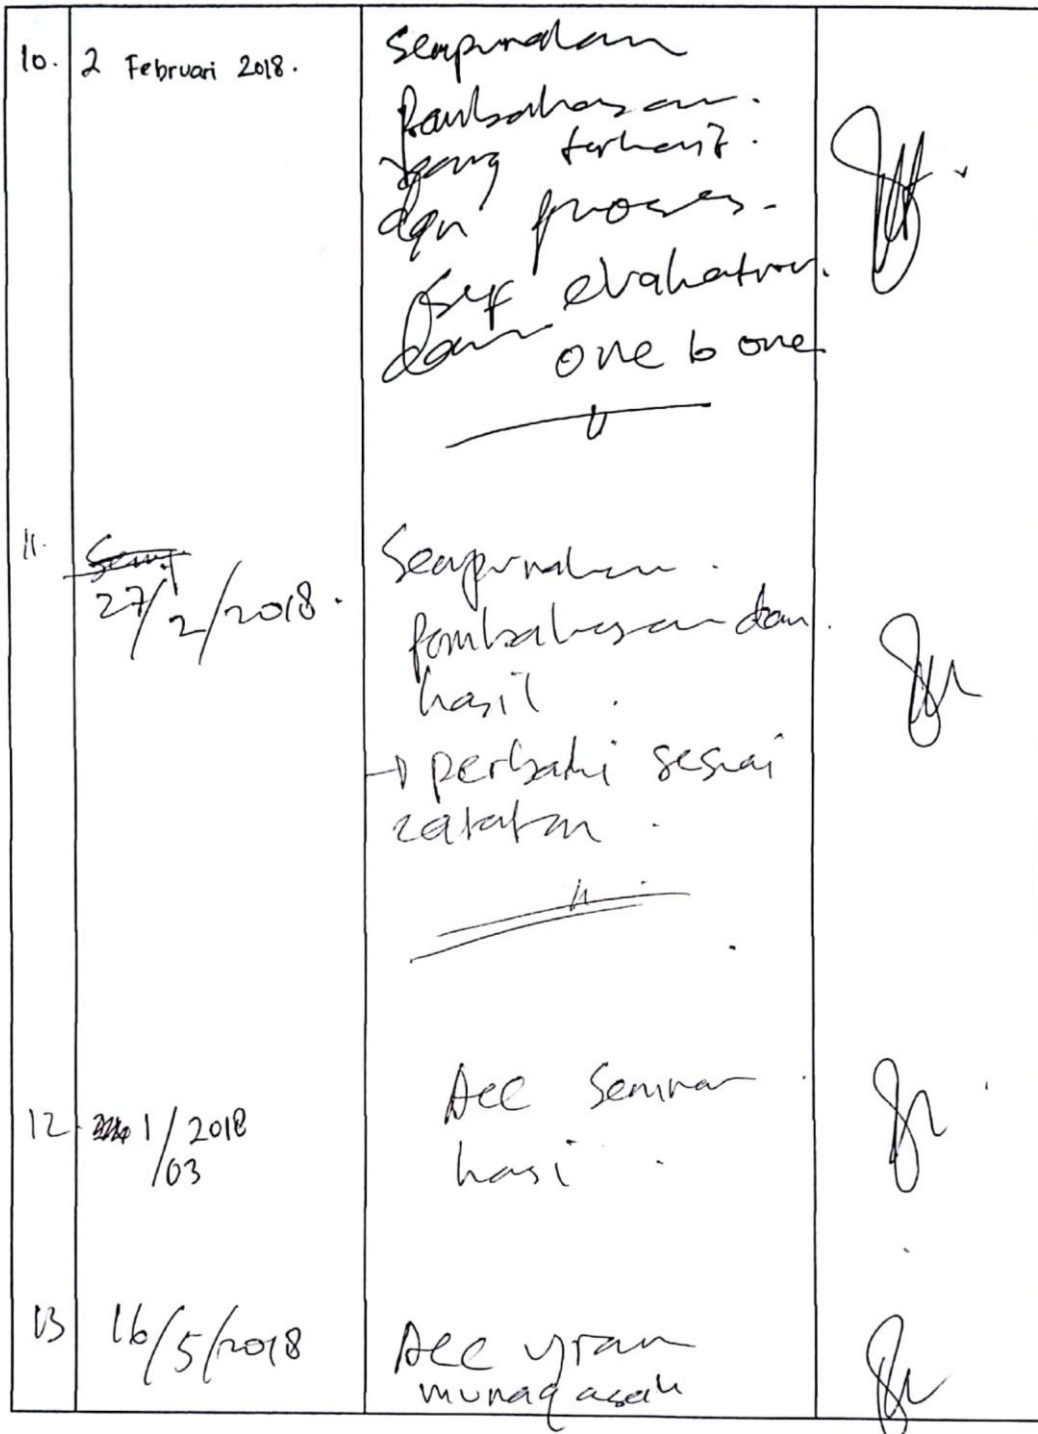 10. 2 Februari 2018.
Sempurnakan
Pembahasan.
yang terkait.
dgn proses.
self evaluation.
dan one to one
11.
27/2/2018.
Sempurnakan.
pembahasan dan.
hasil.
→ perbaiki sesuai
catatan.
12 1/2018
/03
Acc Seminar.
hasi.
13 16/5/2018
Acc ujian
munaqasah